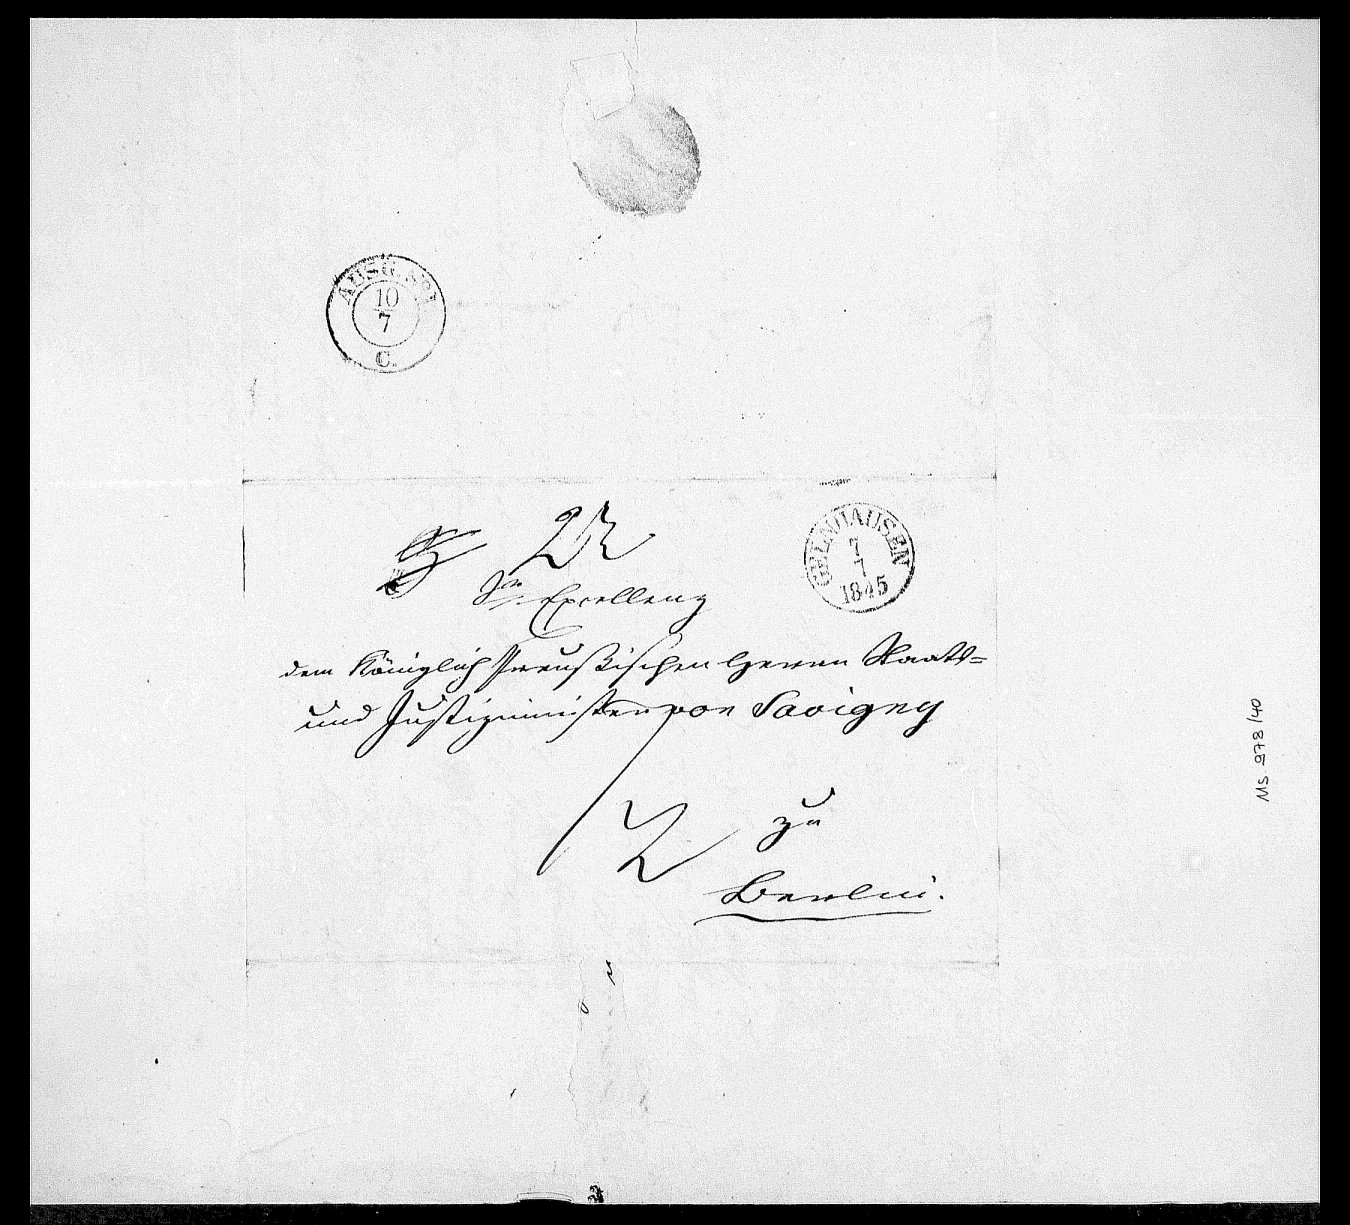 AUSG. No 1
10
7
C.
GELNHAUSEN
7
7
1845
Sr. Excellenz
dem Königlich Preußischen Herrn Staats=
und Justizminister von Savigny
zu
Berlin.
MS 978/40